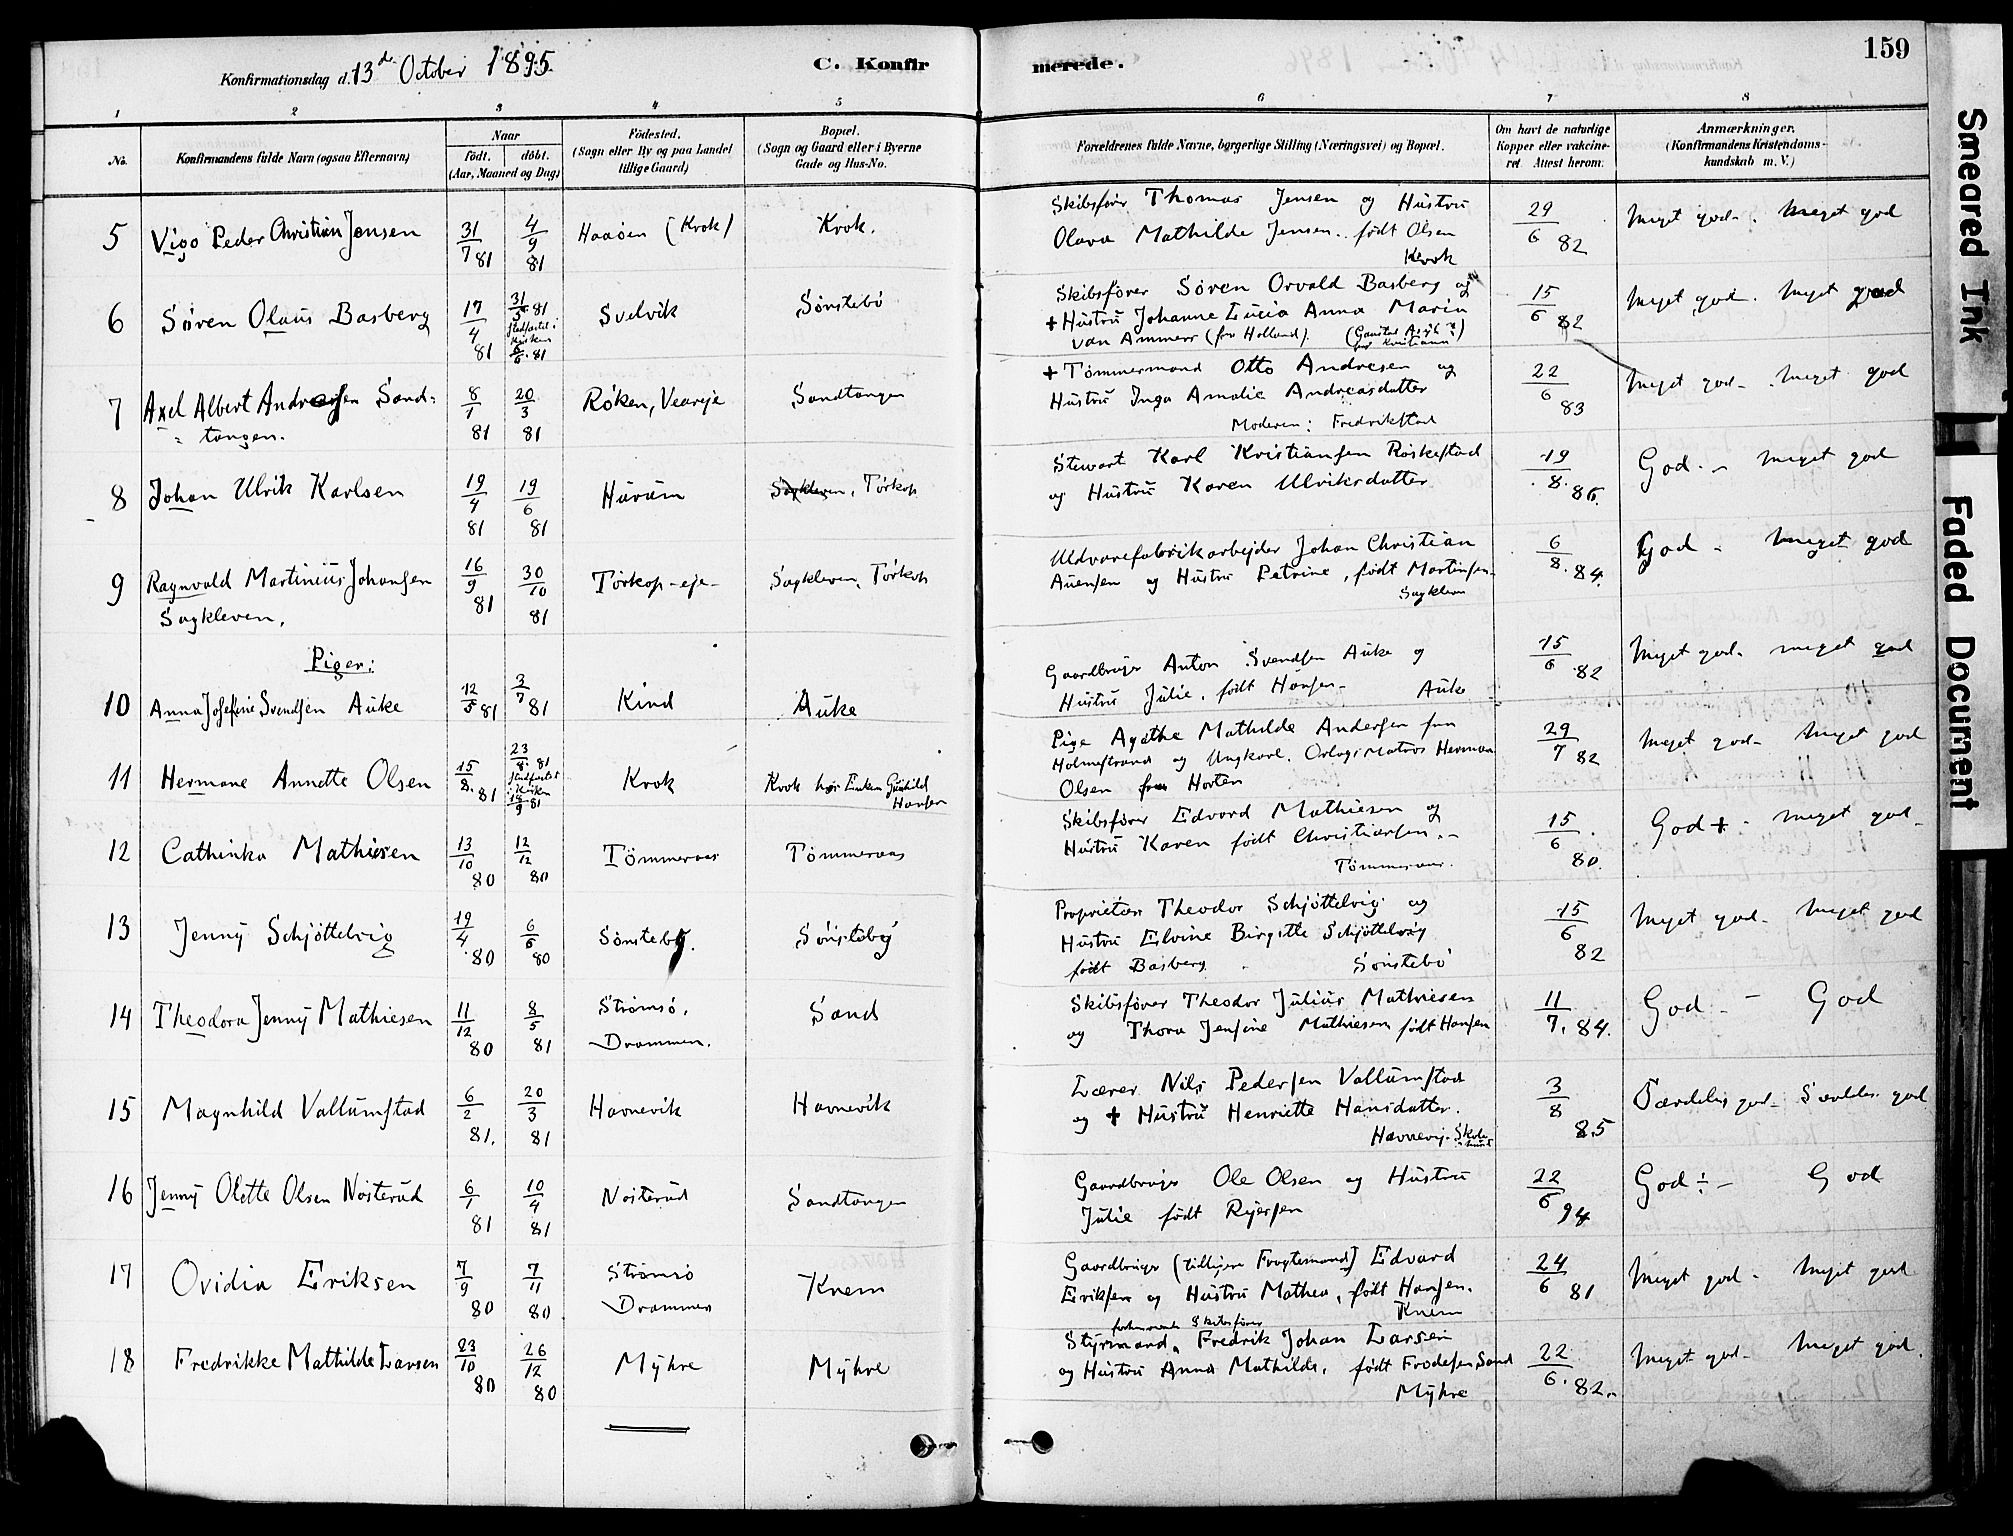 Konfirmationsdag d. 13de October 1895.
C. Konfirmerede.
159
1 2 3 4 5 6 7 8
No.
Konfirmandens fulde Navn (ogsaa Efternavn)
Naar
født. døbt.
(Aar, Maaned og Dag)
Fødested.
(Sogn eller By og paa Landet
tillige Gaard)
Bopæl.
(Sogn og Gaard eller i Byerne
Gade og Hus-No.
Forældrenes fulde Navne, borgerlige Stilling (Næringsvei) og Bopæl.
Om havt de naturlige
Kopper eller vakcine-
ret. Attest herom.
Anmærkninger.
(Konfirmandens Kristendoms-
kundskab m. V.)
5 Vigo Peder Christian Jensen 31/7 81 4/9 81 Haaøen (Krok) Krok.
Skibsfører Thomas Jensen og Hustru
Olava Mathilde Jensen. født Olsen
Krok
29/6 82 Meget god - Meget god
6 Søren Olaus Basberg 17/4 81 31/5 81 stadfæstet i Kirken 6/6 81 Svelvik Sønstebø
Skibsfører Søren Orvald Basberg og
+ Hustru Johanne Lucia Anna Maria
van Ammers (fra Holland).
15/6 82 Meget god. Meget god
7 Axel Albert Andresen Sand=
= tangen.
8/1 81 20/3 81 Røken, Sandtangen
+ Tømmermand Otto Andresen og
Hustru Inga Amalie Andreasdatter
Moderen: Fredrikstad
22/6 83 Meget god - Meget god
8 Johan Ulrik Karlsen 19/4 81 19/6 81 Hurum Sagkleven, Tørkop
Stewart Karl Kristiansen Røskestad
og Hustru Karen Ulriksdatter
19/8. 86. God - Meget god
9 Ragnvald Martinius Johansen
Sagkleven.
16/9 81 30/10 81 Tørkop-eje- Sagkleven, Tørkop
Uldvarefabrikarbejder Johan Christian
Auensen og Hustru Petrine, født Martinsen-
Sagkleven
6/8. 84. God - Meget god
Piger:
10 Anna Josefine Svendsen Auke 12/5 81 3/7 81 Kind Auke
Gaardbruger Anton Svendsen Auke og
Hustru Julie, født Hansen - Auke
15/6 82 Meget god. meget god
11 Hermane Annette Olsen 15/8. 81 23/8. 81 stadfæstet i Kirken 18/9 81 Krok Krok hos Enken Gunhild
Hansen
Pige Agathe Mathilde Andersen fra
Holmestrand og Ungkarl. Orlogs Matros Herman
Olsen fra Horten
29/7 82 Meget god - Meget god
12 Cathinka Mathiesen 13/10 80 12/12 80 Tömmeraas Tømmeraas
Skibsfører Edvard Mathiesen og
Hustru Karen født Christiansen. -
Tømmeraas.
15/6 80. God + - meget god -
13 Jenny Schjøttelvig 19/4 80 6/6 80 Sønsteby. Sønsteby
Proprietær Theodor Schjøttelvig og
Hustru Elvine Birgitte Schjøttelvig
født Basberg. Sønstebø
15/6 82 Meget god - Meget god
14 Theodora Jenny Mathiesen 11/12 80 8/5 81 Strømsø,
Drammen.
Sand
Skibsfører Theodor Julius Mathiesen
og Thora Jensine Mathiesen født Hansen
11/7. 84. God - God
15 Magnhild Vallumstad 6/2 81. 20/3 81 Havnevik Havnevik
Lærer Nils Pedersen Vallumstad
og + Hustru Henriette Hansdatter.
3/8 85 Særdeles god - Særdeles god
16 Jenny Olette Olsen Nøsterud 6/1 81 10/4 81 Nøsterud Sandtangen
Gaardbruger Ole Olsen og Hustru
Julie født Rejersen
22/6 94 God ÷ - God
17 Ovidia Eriksen 7/9 80 7/11 80 Strømsø
Drammen
Knem
Gaardbruger (tidligere Fragtemand) Edvard
Eriksen og Hustru Mathea, født Hansen.
Knem
24/6 81 Meget god - Meget god
18 Fredrikke Mathilde Larsen 23/10 80 26/12 80 Myhre Myhre
forhenværende Skibsfører
Styrmand, Fredrik Johan Larsen
og Hustru Anna Mathilde, født Frodesen Sand
Myhre
22/6. 82. Meget god - Meget god.
Smeared Ink
Faded Document